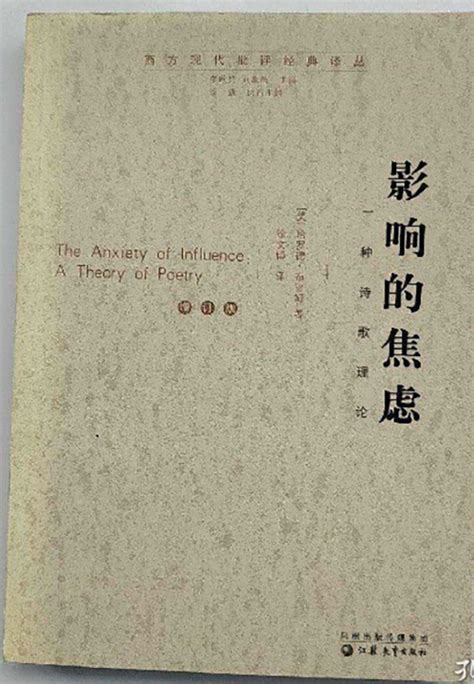 西方现代批评经典译丛
影响的焦虑
一种诗歌理论
[美]哈罗德·布鲁姆 著
徐文博 译
The Anxiety of Influence:
A Theory of Poetry
增订版
凤凰出版传媒集团
江苏教育出版社
孔